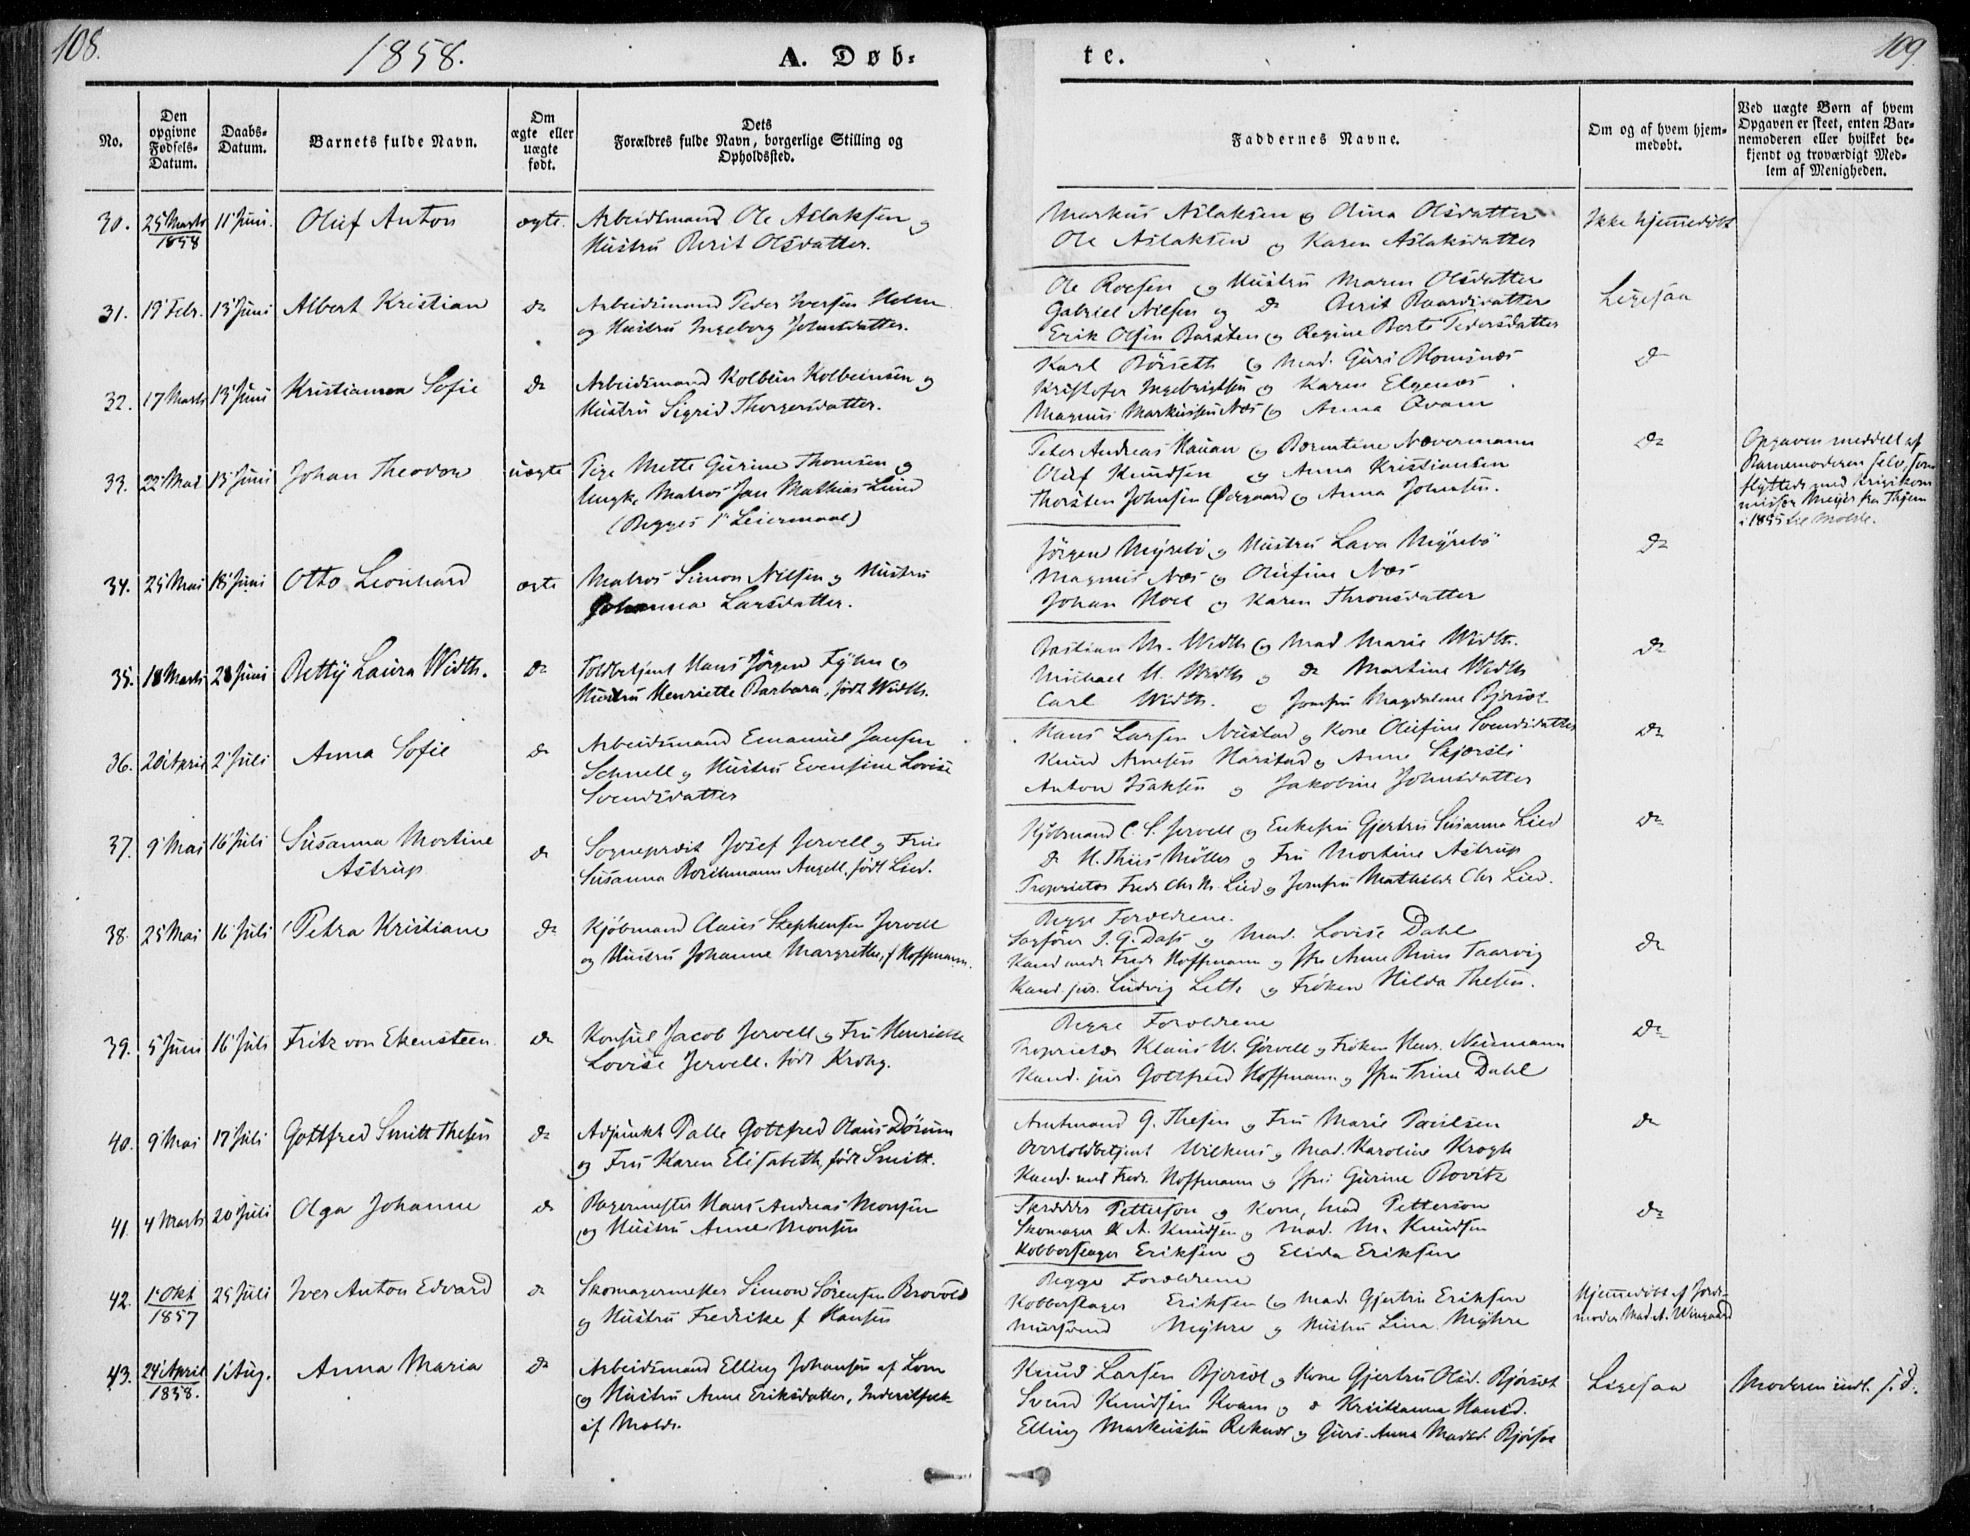 108.
1858.
A. Døb-
te.
109
No.
Den opgivne Fødsels-Datum.
Daabs-Datum.
Barnets fulde Navn.
Om ægte eller uægte født.
Dets Forældres fulde Navn, borgerlige Stilling og Opholdssted.
Faddernes Navne.
Om og af hvem hjem-medøbt.
Ved uægte Børn af hvem Opgaven er skeet, enten Bar-nemoderen eller hvilket be-kjendt og troværdigt Med-lem af Menigheden.
30. 25 Marts 1858 11 Juni. Oluf Anton ægte. Arbeidsmand Ole Aslaksen og
Hustru Berit Olsdatter.
Markus Aslaksen og Olina Olsdatter
Ole Aslaksen og Karen Aslaksdatter
Ikke hjemmedöbt
31. 19 Febr. 13 Juni Albert Kristian do Arbeidsmand Peder Iversen Holm
og Hustru Ingeborg Johnsdatter.
Ole Roesen og Hustru Maren Olsdatter
Gabriel Nilsen og do Berit Baardsdatter
Erik Olsen Barsten og Regine Berte Pedersdatter
Ligesaa
32. 17 Marts 13 Juni Kristianna Sofie do Arbeidsmand Kolbein Kolbeinsen og
Hustru Sigrid Thorgersdatter.
Karl Börseth og Mad. Guri Blomsnæs
Kristofer Ingebrigtsen og Karen Elgenæs
Magnus Markussen Næs og Anna Qvam
do
33. 22 Mai 13 Juni Johan Theodor uægte Pige Mette Gurine Thomsen og
Ungk. Matros Jan Mathias Lund
(Begges 1te Leiermaal)
Peter Andreas Hauan og Berntine Nævermann
Oluf Knudsen og Anna Kristiansen
Thorsten Johnsen Ödegaard og Anna Johnsen.
do
Opgaven meddelt af
Barnemoderen selv, som
flyttede med Krigskom
missær Meyer fra Thjem
i 1855 til Molde.
34. 25 Mai 18 Juni Otto Leonhard ægte Matros Simon Nilsen og Hustru
Johanna Larsdatter.
Jörgen Myrebö og Hustru Lava Myrebö
Magnus Næs og Olufine Næs
Johan Hoel og Karen Thronsdatter
do
35. 18 Marts 28 Juni Betty Laura Width. do Toldbetjent Hans Jörgen Fyhn og
Hustru Henriette Barbara, födt Width.
Bastian M. Width og Mad Marie Width.
Michael H. Width og do Martine Width
Carl Width. og Jomfru Magdalene Björset
do
36. 20 April 2 Juli Anna Sofie do Arbeidsmand Emanuel Jansen
Schnell og Hustru Evensine Lovise
Svendsdatter
Hans Larsen Nustad og Kone Olufine Svendsdatter
Knud Arnesen Harstad og Anne Skjærsli
Anton Isaksen og Jakobine Johnsdatter
do
37. 9 Mai 16 Juli Susanna Martine
Astrup do Sognepræst Josef Jervell og Frue
Susanna Borchmann Angell, födt Lied.
Kjöbmand C. S. Jervell og Enkefru Gjertru Susanna Lied
do H. Thiis Möller og Fru Martine Astrup
Proprietær Fredr Chr M. Lied og Jomfru Mathilde Chr Lied.
do
38. 25 Mai 16 Juli Petra Kristiane do Kjöbmand Claus Stephensen Jervell
og Hustru Johanne Margrethe, f Hoffmann.
Begge Foreldrene.
Sagförer J. G. Dass og Mad. Lovise Dahl
Kand med. Fredr Hoffmann og Jfr Anne Bruun Taarvig
Kand. jur. Ludvig Lette og Fröken Hilda Thesen.
do
39. 5 Juni 16 Juli Fritz von Ekensteen do Konsul Jacob Jervell og Fru Henriette
Lovise Jervell. födt Krohg.
Begge Foreldrene
Proprietær Klaus W. Görvell og Fröken Henr. Neumann
Kand. jur Gottfred Hoffmann og Jfru Trine Dahl
do
40. 9 Mai 17 Juli Gottfred Smitt Thesen do Adjunkt Palle Gottfred Olaus Dörum
og Fru Karen Elisabeth, födt Smitt.
Amtmand G. Thesen og Fru Marie Paulsen
Overtoldbetjent Wilkens og Mad. Karoline Krogh
Kand. med Fredr. Hoffmann og Jfru Gurine Rovitz
do
41. 4 Marts 20 Juli Olga Johanne do Bagermester Hans Andreas Monsen
og Hustru Anne Monsen
Skrædder Petterson og Kone, Mad Petterson
Skomager K A. Knudsen og Mad. M. Knudsen
Kobberslager Eriksen og Elida Eriksen
do
42. 1 Okt 1857 25 Juli Iver Anton Edvard do Skomagermester Simon Sörensen Brovold
og Hustru Fredrike f Hansen
Begge Foreldrene
Kobberslager Eriksen og Mad. Gjertru Eriksen
Mursvend Myhre og Hustru Lina Myhre
Hjemmedöbt af Jorde-
moder Mad A. Wingaard
43. 24 April 1858. 1 Aug. Anna Maria do Arbeidsmand Elling Johansen af Lom
og Hustru Anne Eriksdatter, Inderst
af Molde.
Knud Larsen Björset og Kone Gjertru Olsd. Björset
Svend Knudsen Kvam og do Kristianna Hansd.
Elling Markussen Reknæs og Guri Anna Madsd. Björset
Ligesaa
Moderen indl. s. D.